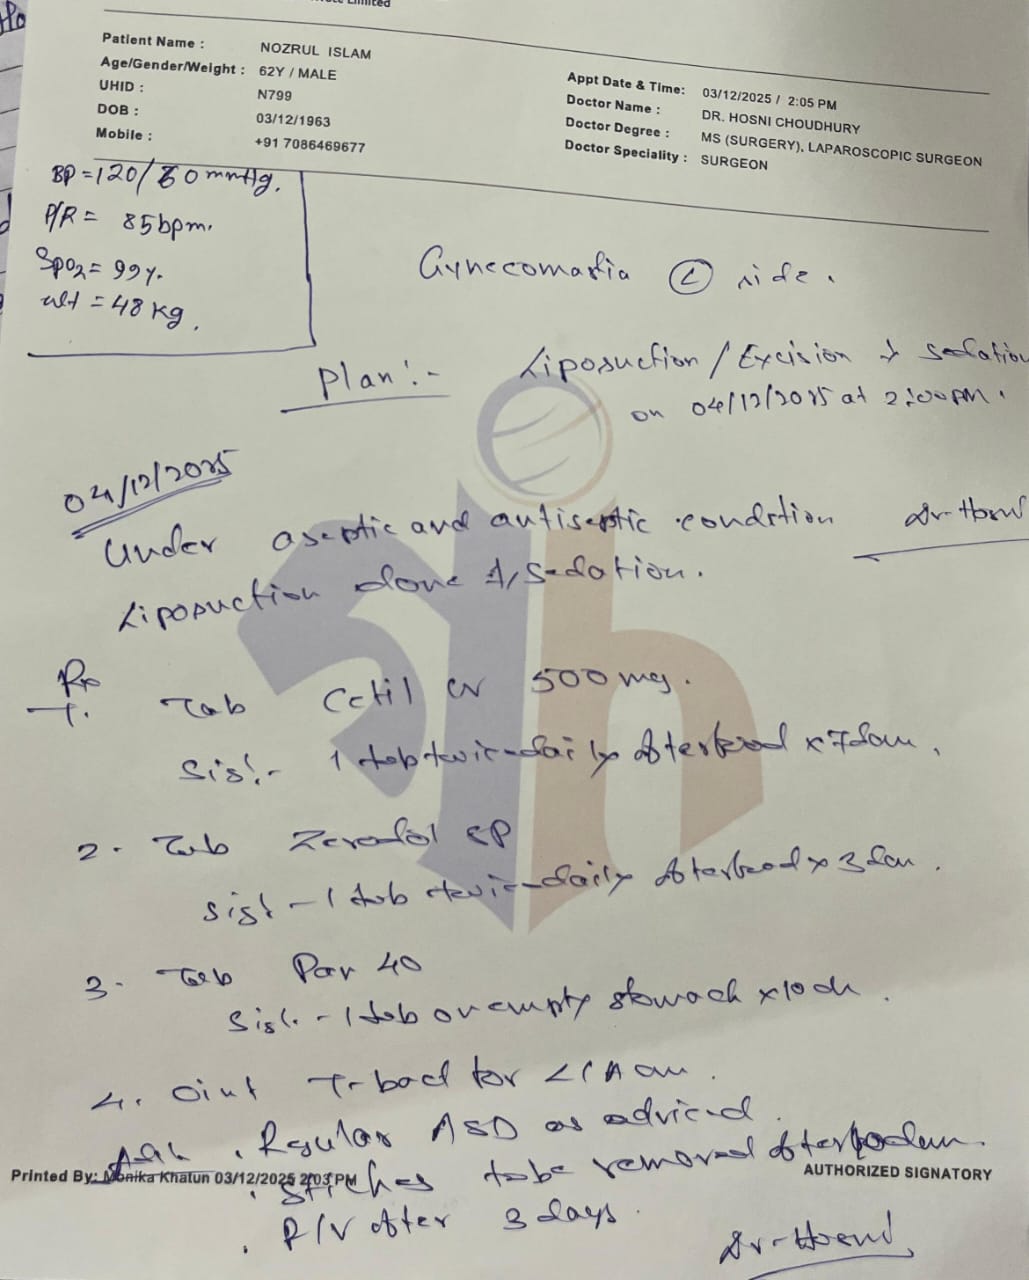 Limited
Patient Name : NOZRUL ISLAM
Age/Gender/Weight : 62Y / MALE
UHID : N799
DOB : 03/12/1963
Mobile : +91 7086469677
Appt Date & Time: 03/12/2025 / 2:05 PM
Doctor Name : DR. HOSNI CHOUDHURY
Doctor Degree : MS (SURGERY), LAPAROSCOPIC SURGEON
Doctor Speciality : SURGEON
BP = 120/80 mmHg.
P/R = 85 bpm.
SpO2 = 99%.
wt = 48 kg.
Gynecomastia Ⓛ side.
Plan:- Liposuction / Excision sedation
on 04/12/2025 at 2:00 PM.
04/12/2025
Under aseptic and antiseptic condition
Dr-Hosni
Liposuction done sedation.
Rx
1. Tab Cetil CV 500 mg.
Sig:- 1 tab twice daily after food x 7 days.
2. Tab Zerodol SP
Sig:- 1 tab twice daily after food x 3 days.
3. Tab Pan 40
Sig:- 1 tab on empty stomach x 10 d
4. Oint T-bact for
Adv. Regular ASD as adviced.
Printed By: Monika Khatun 03/12/2025 2:03 PM
. Stiches to be removed after
AUTHORIZED SIGNATORY
. R/V after 3 days.
Dr-Hosni